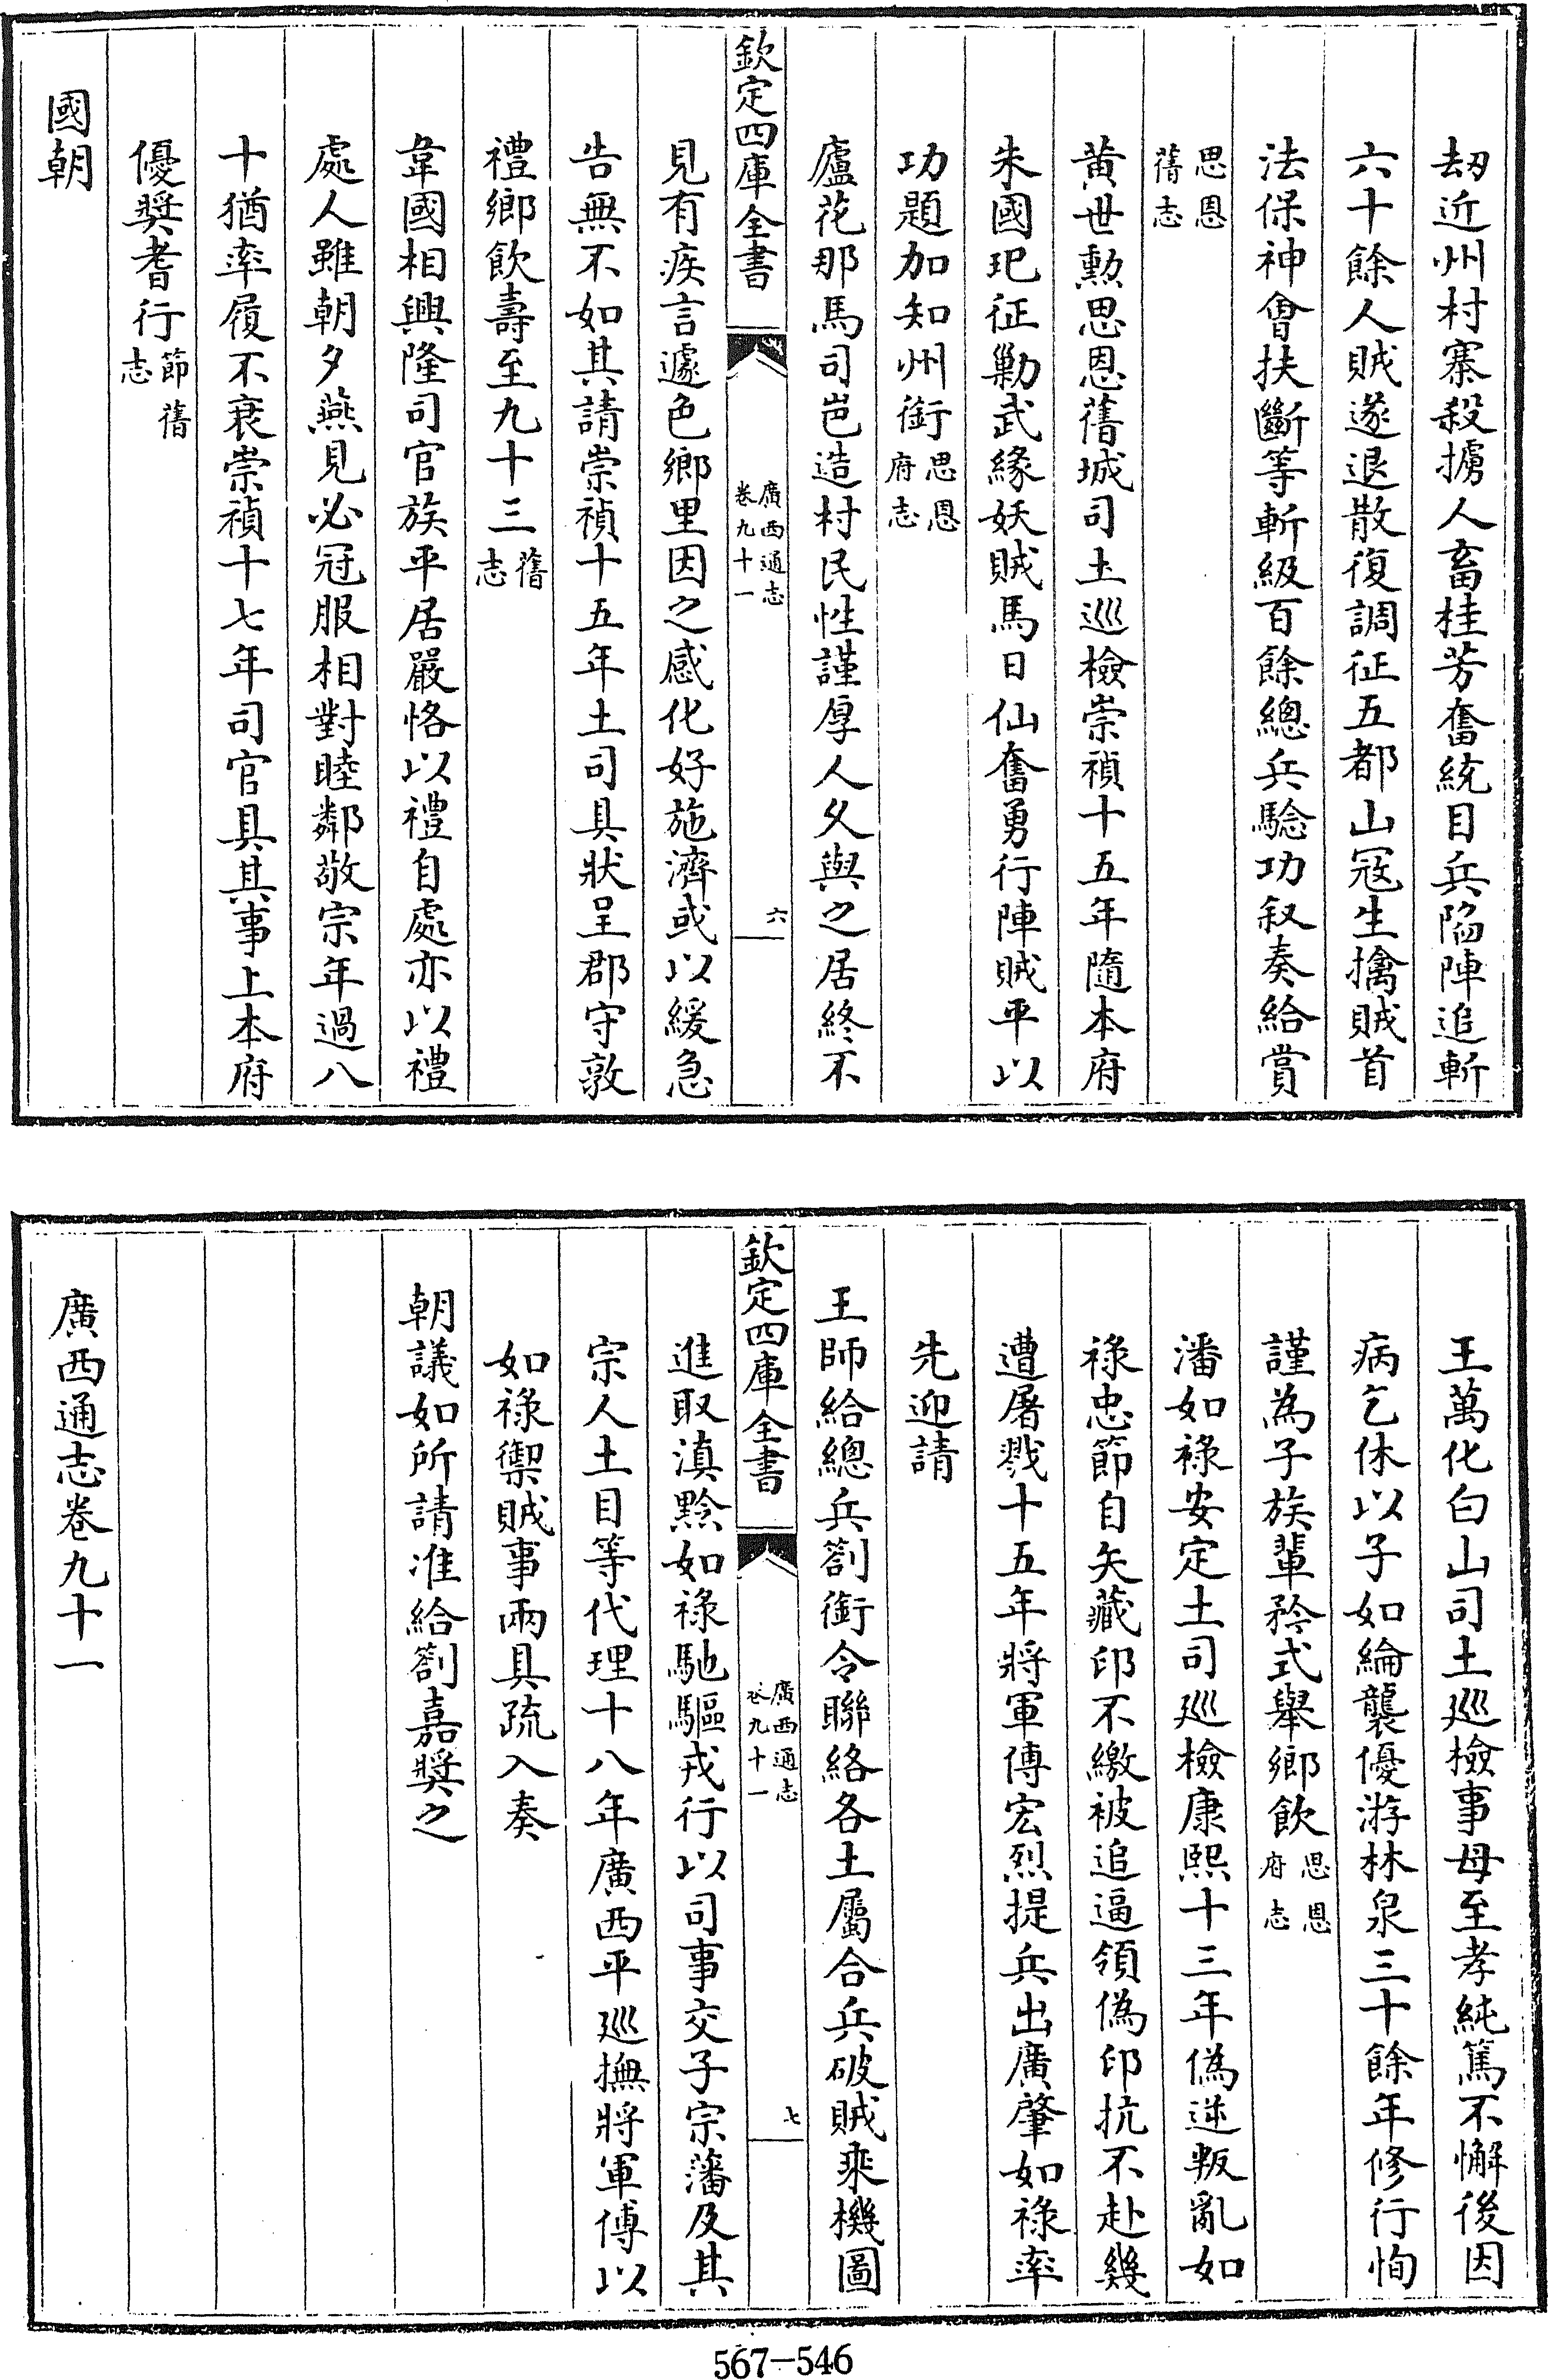 刼近州村寨殺擄人畜桂芳奮統目兵陷陣追斬
六十餘人賊遂退散復調征五都山冦生擒賊首
法保神會扶斷等斬級百餘總兵騐功叙奏給賞
思恩
舊志
黄世勲思恩舊城司土巡檢崇禎十五年隨本府
朱國玘征勦武緣妖賊馬日仙奮勇行陣賊平以
功題加知州銜思恩
府志
廬花那馬司岜造村民性謹厚人久與之居終不
欽定四庫全書
廣西通志
卷九十一
六
見有疾言遽色鄉里因之感化好施濟或以緩急
告無不如其請崇禎十五年土司具狀呈郡守敦
禮鄉飲壽至九十三舊
志
韋國相興隆司官族平居嚴恪以禮自處亦以禮
處人雖朝夕燕見必冠服相對睦鄰敬宗年過八
十猶率履不衰崇禎十七年司官具其事上本府
優奬耆行節舊
志
國朝
王萬化白山司土廵檢事母至孝純篤不懈後因
病乞休以子如綸襲優游林泉三十餘年修行恂
謹為子族輩矜式舉鄉飲思恩
府志
潘如禄安定土司廵檢康熙十三年偽逆叛亂如
禄忠節自矢藏印不繳被追逼領偽印抗不赴幾
遭屠戮十五年將軍傅宏烈提兵出廣肇如禄率
先迎請
王師給總兵劄銜令聯絡各土屬合兵破賊乘機圖
欽定四庫全書
廣西通志
卷九十一
七
進取滇黔如禄馳驅戎行以司事交子宗藩及其
宗人土目等代理十八年廣西平廵撫將軍傅以
如禄禦賊事兩具疏入奏
朝議如所請准給劄嘉奬之
廣西通志卷九十一
567-546